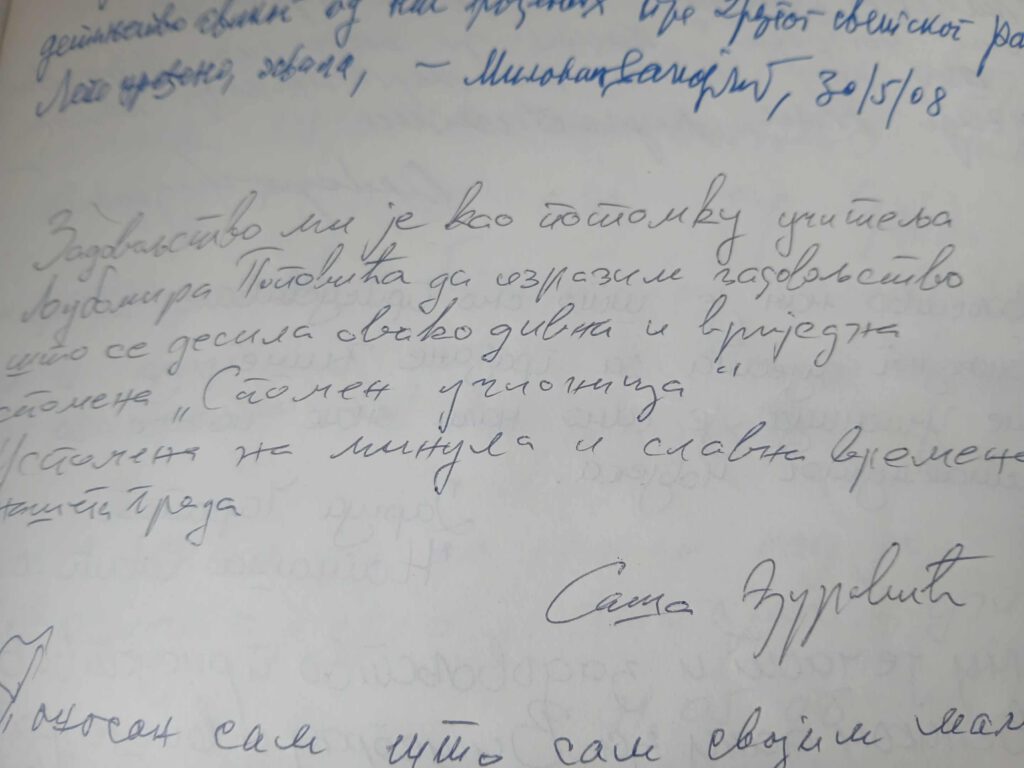 детињство од нас рођених пре Другог светског ра
Лепо хвала, – Милован 30/5/08
Задовољство ми је као потомку учитеља
Љубомира Поповића да изразим задовољство
што се десила овако дивна и вриједна
спомена „Спомен учионица“
Успомена на минула и славна времена
нашега града
Саша
Поносан сам што сам својим